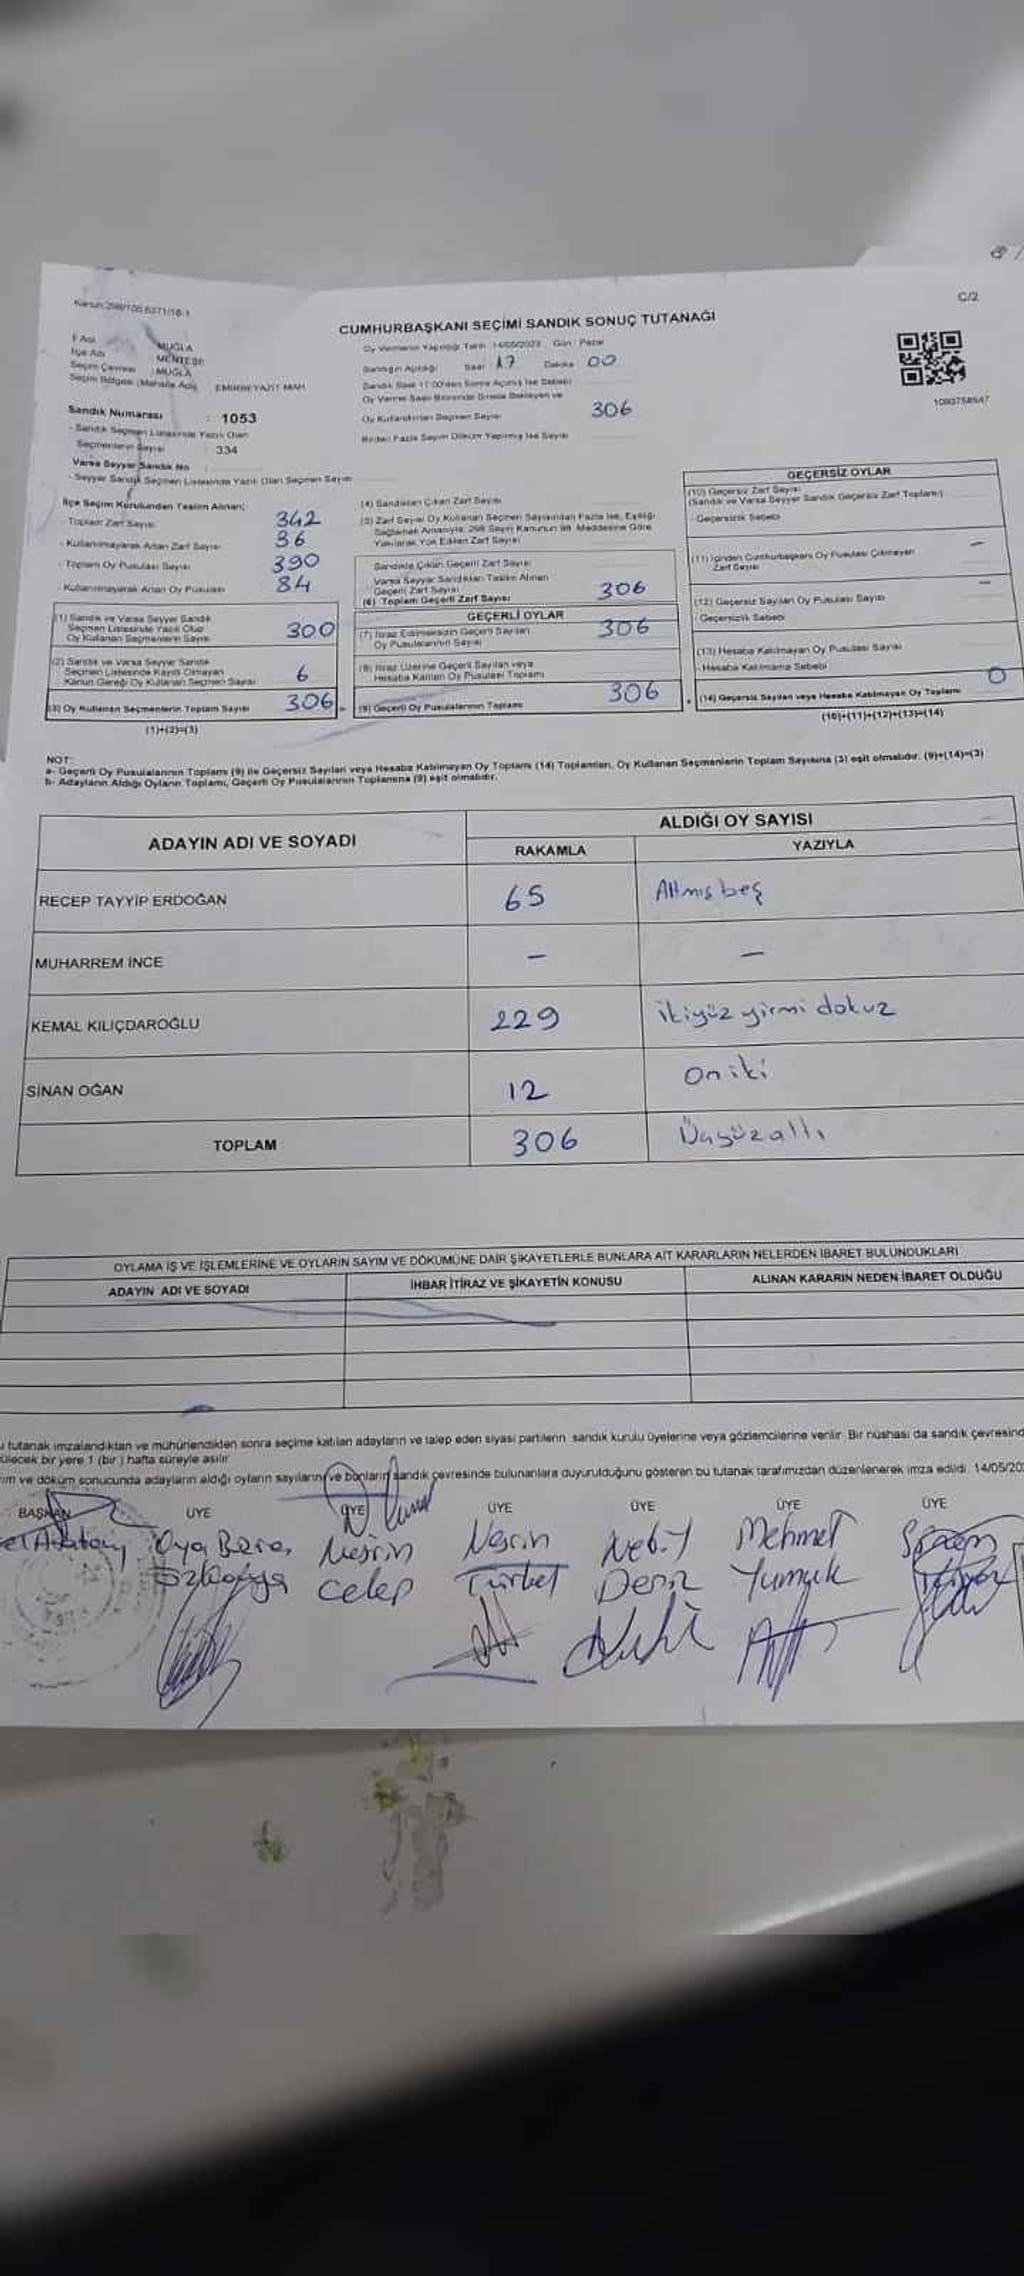 C/2
Kanun:298/105,6271/16-1
CUMHURBAŞKANI SEÇİMİ SANDIK SONUÇ TUTANAĞI
İl Adı MUĞLA
İlçe Adı MENTEŞE
Seçim Çevresi :MUĞLA
Seçim Bölgesi (Mahalle Adı) EMİRBEYAZIT MAH.
Sandık Numarası : 1053
- Sandık Seçmen Listesinde Yazılı Olan
Seçmenlerin Sayısı : 334
Varsa Seyyar Sandık No
- Seyyar Sandık Seçmen Listesinde Yazılı Olan Seçmen Sayısı
Oy Vermenin Yapıldığı Tarih 14/05/2023 Gün : Pazar
Sandığın Açıldığı Saat 17 Dakika 00
Sandık Saat 17:00'den Sonra Açılmış İse Sebebi
Oy Verme Saati Bitiminde Sırada Bekleyen ve
Oy Kullandırılan Seçmen Sayısı 306
Birden Fazla Sayım Döküm Yapılmış İse Sayısı
1093758547
İlçe Seçim Kurulundan Teslim Alınan;
- Toplam Zarf Sayısı 342
- Kullanılmayarak Artan Zarf Sayısı 36
- Toplam Oy Pusulası Sayısı 390
- Kullanılmayarak Artan Oy Pusulası 84
(1) Sandık ve Varsa Seyyar Sandık
Seçmen Listesinde Yazılı Olup
Oy Kullanan Seçmenlerin Sayısı 300
(2) Sandık ve Varsa Seyyar Sandık
Seçmen Listesinde Kayıtlı Olmayan
Kanun Gereği Oy Kullanan Seçmen Sayısı 6
(3) Oy Kullanan Seçmenlerin Toplam Sayısı 306
(1)+(2)=(3)
(4) Sandıktan Çıkan Zarf Sayısı
(5) Zarf Sayısı Oy Kullanan Seçmen Sayısından Fazla İse, Eşitliği
Sağlamak Amacıyla; 298 Sayılı Kanunun 98. Maddesine Göre
Yakılarak Yok Edilen Zarf Sayısı
Sandıkta Çıkan Geçerli Zarf Sayısı
Varsa Seyyar Sandıktan Teslim Alınan
Geçerli Zarf Sayısı
(6) Toplam Geçerli Zarf Sayısı 306
GEÇERLİ OYLAR
(7) İtiraz Edilmeksizin Geçerli Sayılan
Oy Pusulalarının Sayısı 306
(8) İtiraz Üzerine Geçerli Sayılan veya
Hesaba Katılan Oy Pusulası Toplamı
(9) Geçerli Oy Pusulalarının Toplamı 306
GEÇERSİZ OYLAR
(10) Geçersiz Zarf Sayısı
(Sandık ve Varsa Seyyar Sandık Geçersiz Zarf Toplamı)
- Geçersizlik Sebebi
(11) İçinden Cumhurbaşkanı Oy Pusulası Çıkmayan
Zarf Sayısı —
(12) Geçersiz Sayılan Oy Pusulası Sayısı —
- Geçersizlik Sebebi
(13) Hesaba Katılmayan Oy Pusulası Sayısı
- Hesaba Katılmama Sebebi
(14) Geçersiz Sayılan veya Hesaba Katılmayan Oy Toplamı 0
(10)+(11)+(12)+(13)=(14)
NOT:
a- Geçerli Oy Pusulalarının Toplamı (9) ile Geçersiz Sayılan veya Hesaba Katılmayan Oy Toplamı (14) Toplamları, Oy Kullanan Seçmenlerin Toplam Sayısına (3) eşit olmalıdır. (9)+(14)=(3)
b- Adayların Aldığı Oyların Toplamı, Geçerli Oy Pusulalarının Toplamına (9) eşit olmalıdır.
ADAYIN ADI VE SOYADI
ALDIĞI OY SAYISI
RAKAMLA YAZIYLA
RECEP TAYYİP ERDOĞAN 65 Altmış beş
MUHARREM İNCE — —
KEMAL KILIÇDAROĞLU 229 ikiyüz yirmi dokuz
SİNAN OĞAN 12 on iki
TOPLAM 306 Üçyüz altı
OYLAMA İŞ VE İŞLEMLERİNE VE OYLARIN SAYIM VE DÖKÜMÜNE DAİR ŞİKAYETLERLE BUNLARA AİT KARARLARIN NELERDEN İBARET BULUNDUKLARI
ADAYIN ADI VE SOYADI İHBAR İTİRAZ VE ŞİKAYETİN KONUSU ALINAN KARARIN NEDEN İBARET OLDUĞU
u tutanak imzalandıktan ve mühürlendikten sonra seçime katılan adayların ve talep eden siyasi partilerin sandık kurulu üyelerine veya gözlemcilerine verilir. Bir nüshası da sandık çevresind
ülecek bir yere 1 (bir) hafta süreyle asılır.
ım ve döküm sonucunda adayların aldığı oyların sayılarını ve bunların sandık çevresinde bulunanlara duyurulduğunu gösteren bu tutanak tarafımızdan düzenlenerek imza edildi. 14/05/20
BAŞKAN ÜYE ÜYE ÜYE ÜYE ÜYE ÜYE
Oya Nesrin Nesrin Nebil Mehmet
Özkaya Celep Türkel Deniz Yumuk